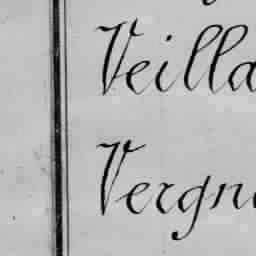 Veilla
Vergn